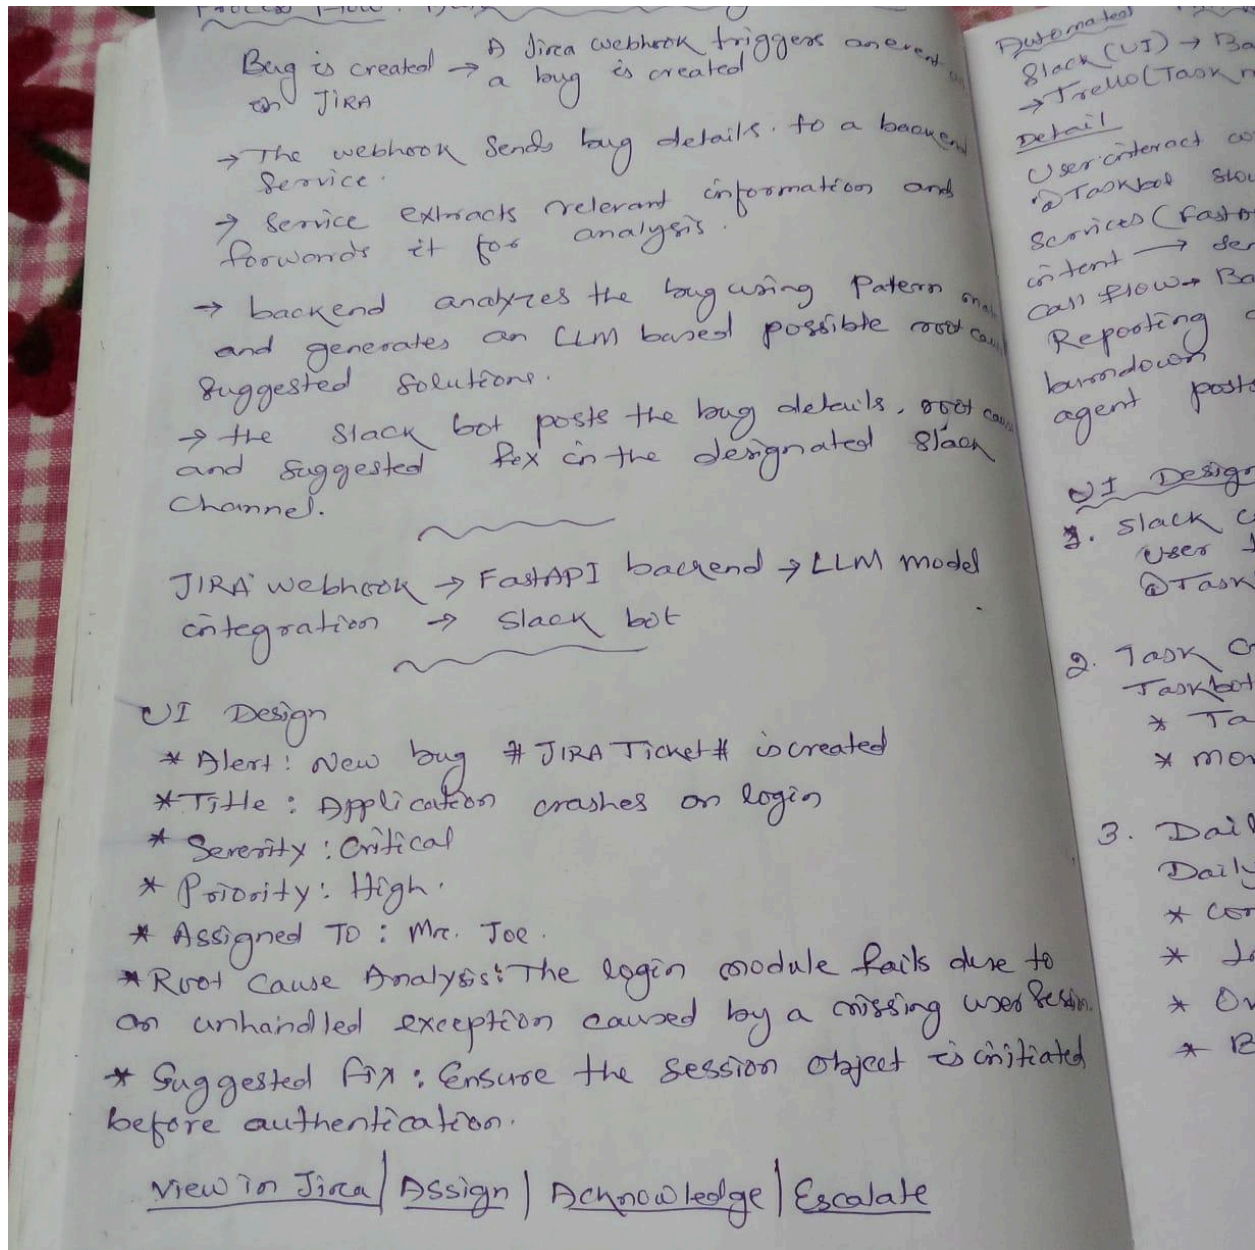 Process Flow:
Bug is created → A Jira webhook triggers an event
on JIRA a bug is created
→ The webhook sends bug details. to a backend
Service.
→ Service extracts relevant information and
forwards it for analysis.
→ backend analyzes the bug using Patern
and generates an LLM based possible root
suggested solutions.
→ the Slack bot posts the bug details, root
and suggested fix in the designated Slack
Channel.
JIRA webhook → FastAPI backend → LLM model
integration → Slack bot
UI Design
* Alert: New bug # JIRA Ticket # is created
* Title: Application crashes on login
* Severity: Critical
* Priority: High.
* Assigned To: Mr. Joe.
* Root Cause Analysis: The login module fails due to
an unhandled exception caused by a missing user session.
* Suggested Fix: Ensure the session object is initiated
before authentication.
View in Jira | Assign | Acknowledge | Escalate
Automated
Slack (UI) →
→ Trello (Task
Detail
User interact
@Taskbot
Services (
intent →
call flow →
Reporting
burndown
agent
UI Design
1. Slack
User
@Task
2. Task
Taskbot
*
*
3.
*
*
*
*